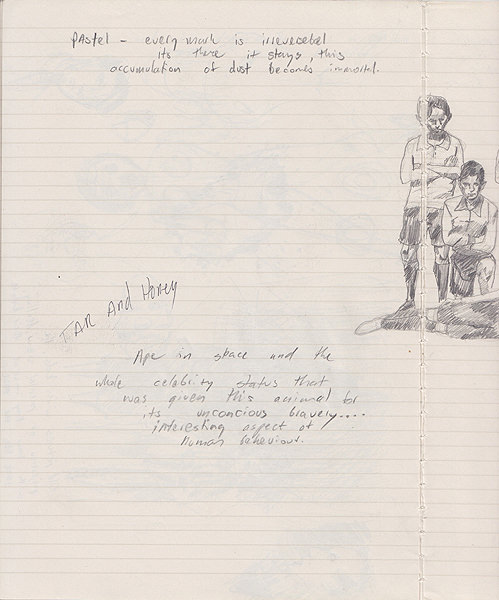 PAstel - every mark is irreversebel
its there it stays, this
accumulation of dust becomes immortal.
TAR And Honey
Ape in space and the
whole celebrity status that
was given this animal for
its unconcious bravery....
interesting aspect of
Human behaviour.